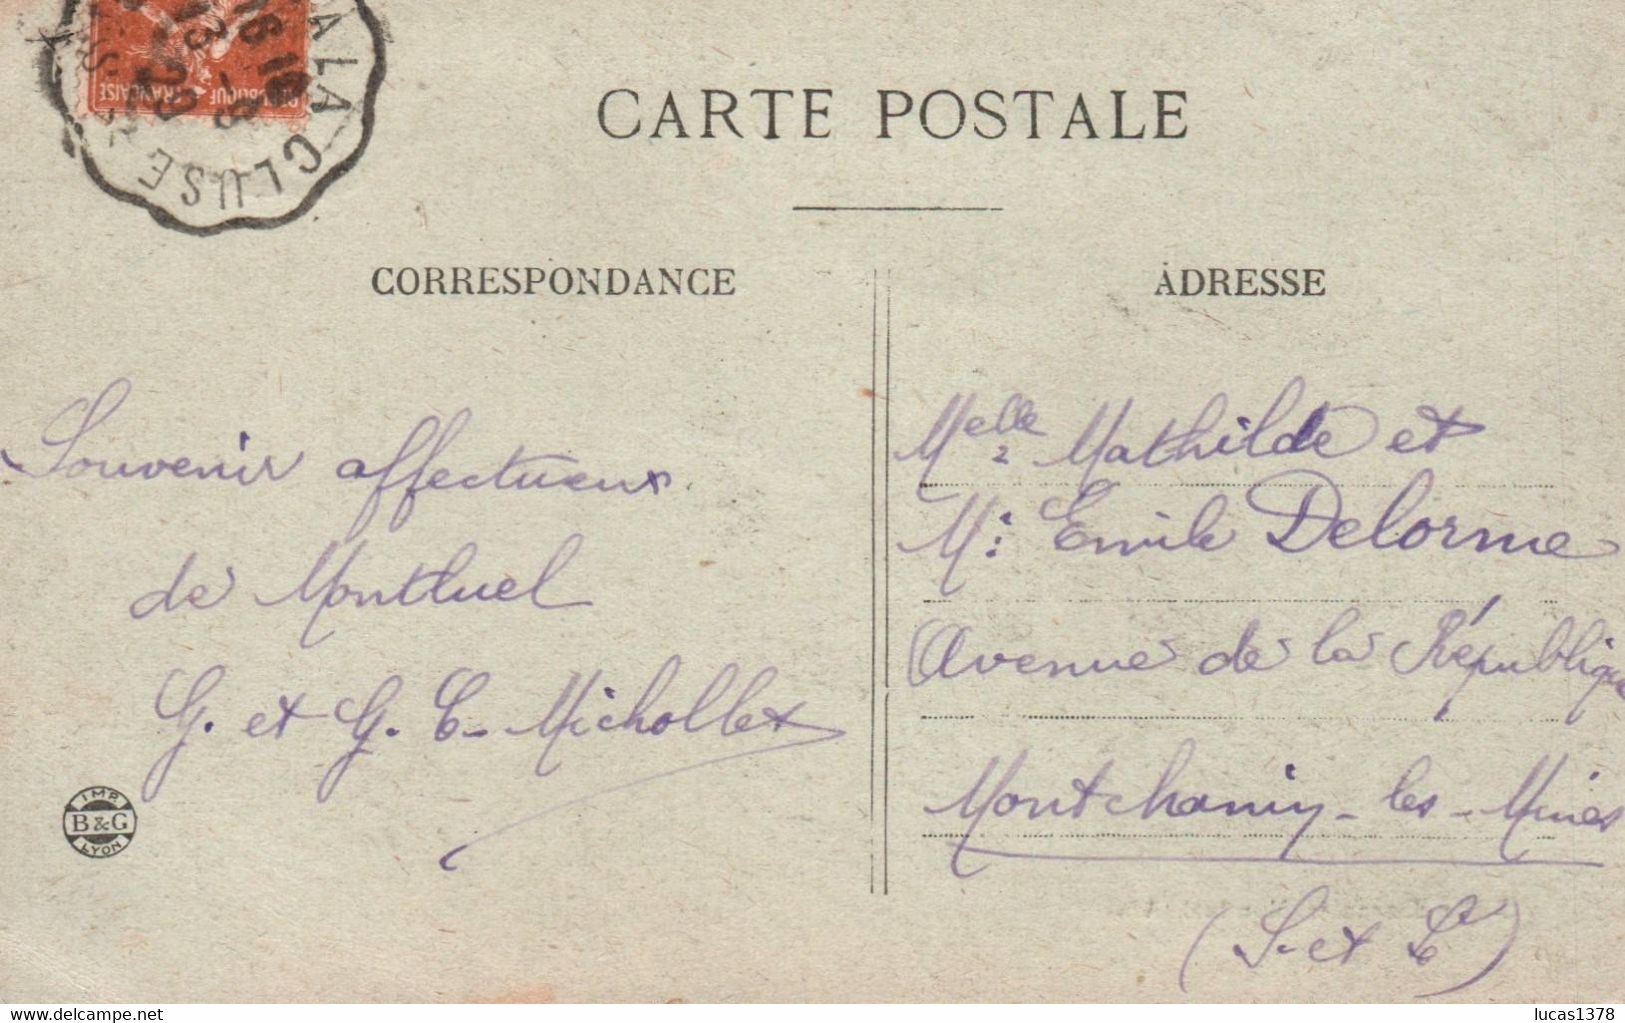 A LA CLUSE
16 18
13 - 8
20
REPUBLIQUE FRANÇAISE
CARTE POSTALE
CORRESPONDANCE
ADRESSE
Souvenir affectueux
de Montluel
G. et G. C- Michollet
Melle Mathilde et
Mr: Emile Delorme
Avenue de la République
Montchanin-les-Mines
(S. et L)
IMP.
B&G
LYON
www.delcampe.net
lucas1378